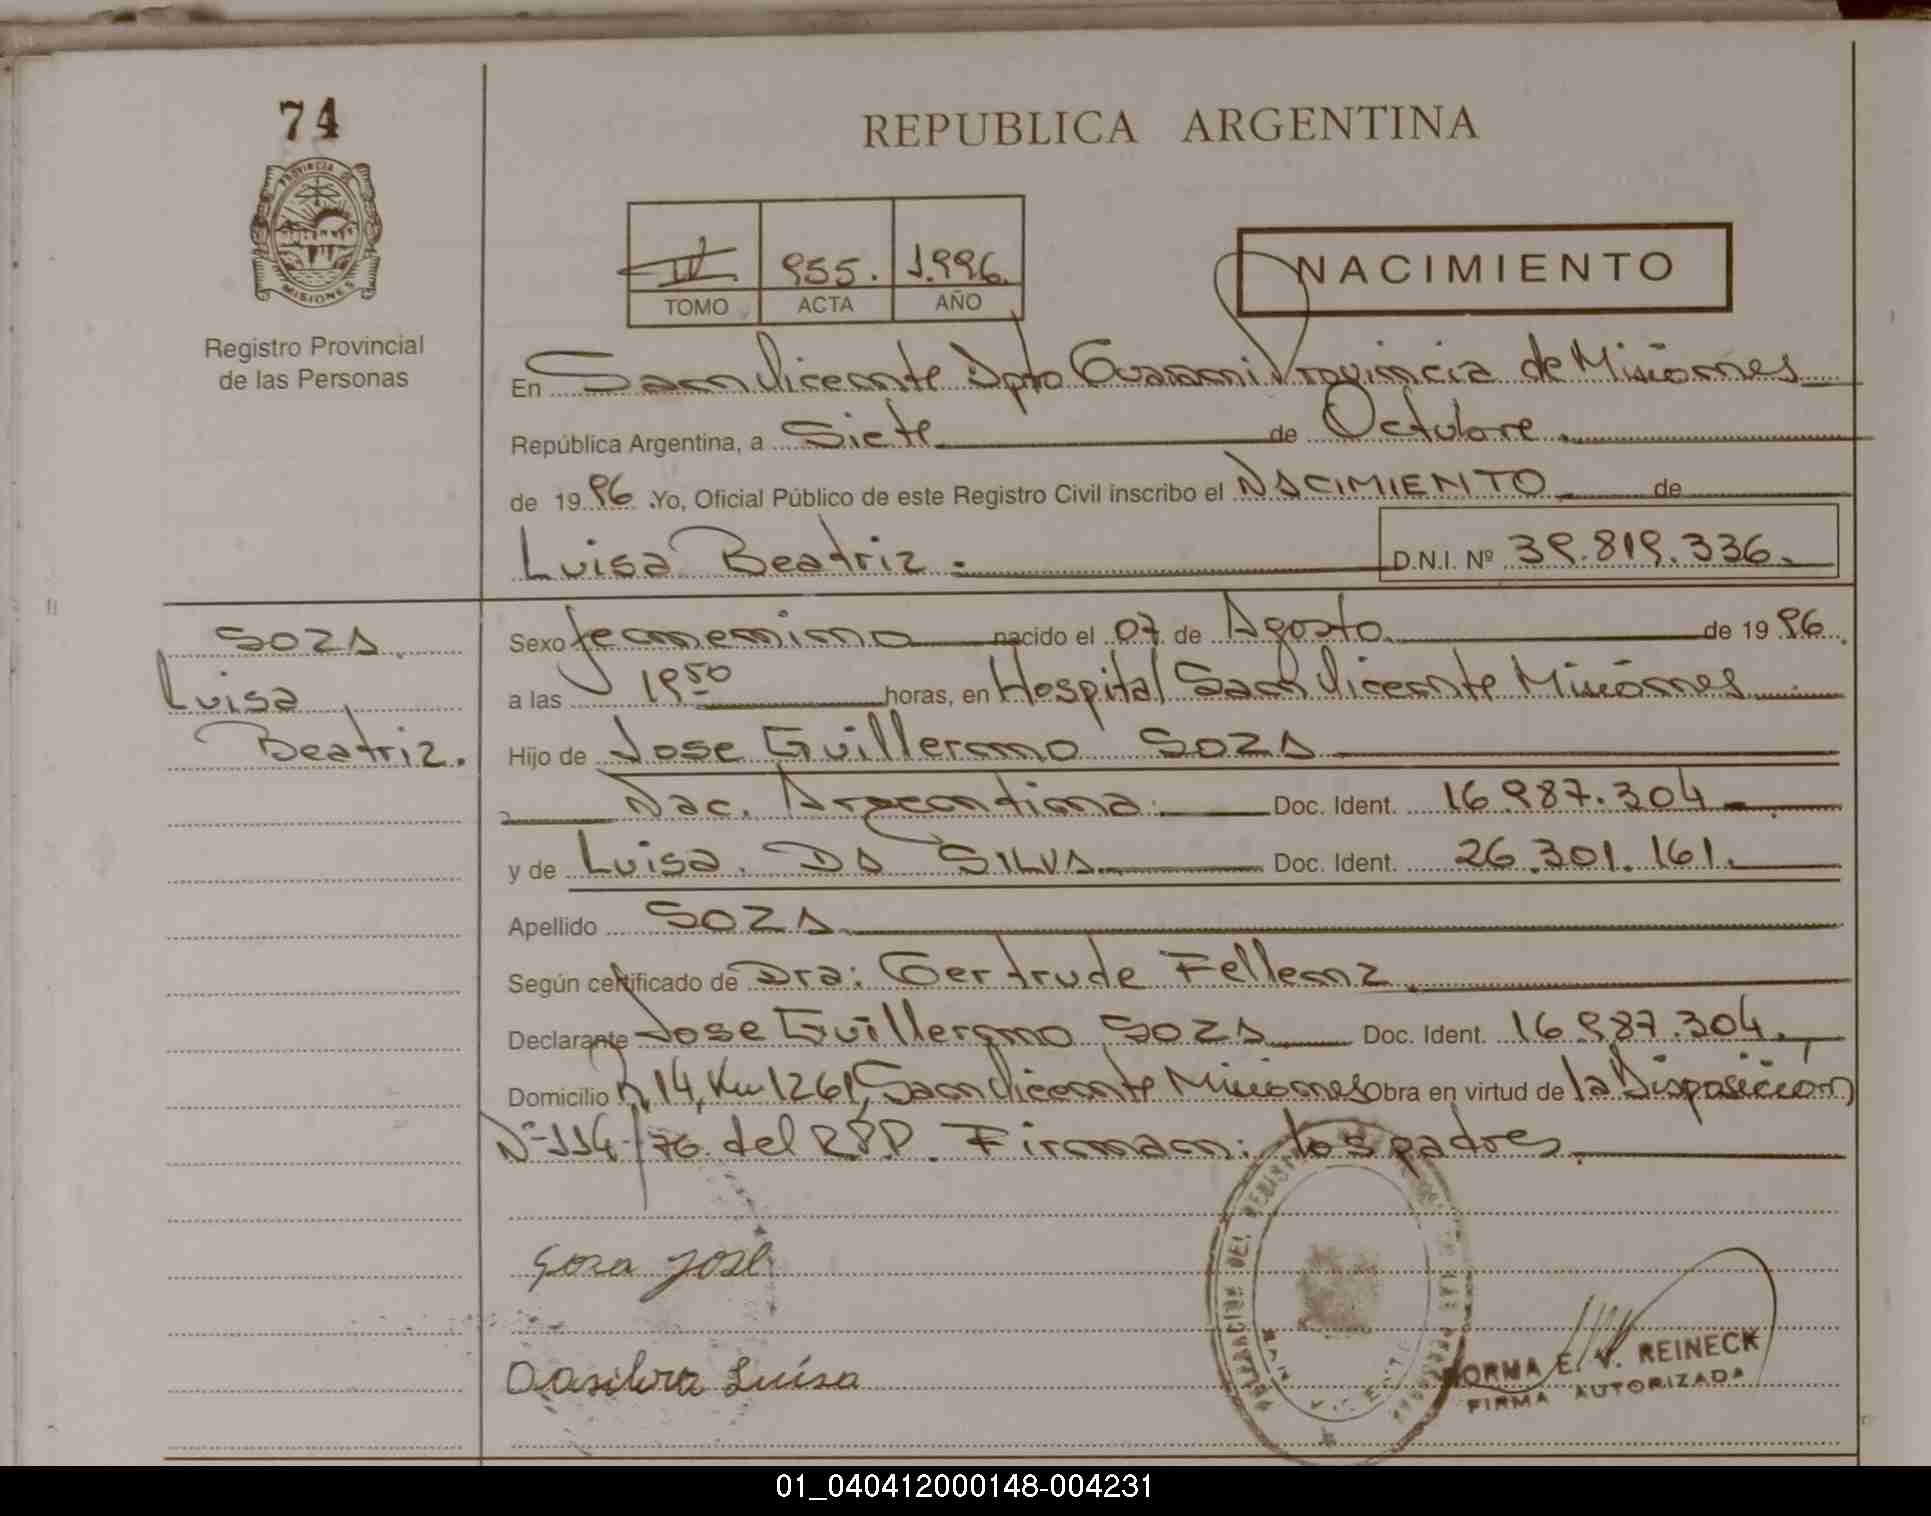 74
PROVINCIA DE
MISIONES
Registro Provincial
de las Personas
REPUBLICA ARGENTINA
IV 955. 1.996.
TOMO ACTA AÑO
NACIMIENTO
En San Vicente Dpto Guarani Provincia de Misiones
República Argentina, a Siete de Octubre
de 1996 .Yo, Oficial Público de este Registro Civil inscribo el NACIMIENTO de
Luisa Beatriz D.N.I. Nº 39.819.336.
SOZA
Luisa
Beatriz.
Sexo femenino nacido el 07 de Agosto de 1996
a las 19 50 horas, en Hospital San Vicente Misiones
Hijo de Jose Guillermo SOZA
Nac. Argentina. Doc. Ident. 16.987.304
y de Luisa DA SILVA Doc. Ident. 26.301.161.
Apellido SOZA
Según certificado de Dra: Gertrude Fellenz
Declarante Jose Guillermo SOZA Doc. Ident. 16.987.304.
Domicilio R, 14, Km 1261, San Vicente Misiones Obra en virtud de la Disposición
Nº 114/76 del R.P.P. Firman: los padres
Soza José
Dasilva Luísa
NORMA E. V. REINECK
FIRMA AUTORIZADA
01_040412000148-004231